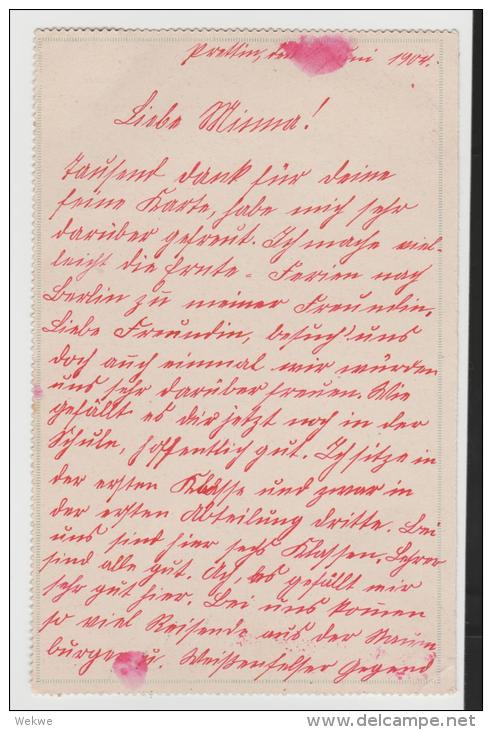 Prettin, den Juni 1904.
Liebe Minna!
Tausend dank für deine
feine Karte, habe mich sehr
darüber gefreut. Ich mache viel-
leicht die Ernte-Ferien nach
Berlin zu meiner Freundin.
Liebe Freundin, besuch' uns
doch auch einmal wir würden
uns sehr darüber freuen. Wie
gefällt es dir jetzt noch in der
Schule, hoffentlich gut. Ich sitze in
der ersten Klasse und zwar in
der ersten Abteilung dritte. Bei
uns sind hier sechs Klassen. Lehrer
sind alle gut. Ach, es gefällt mir
sehr gut hier. Bei uns kommen
so viel Reisende aus der Naum
burger u. Weißenfelser Gegend
Wekwe